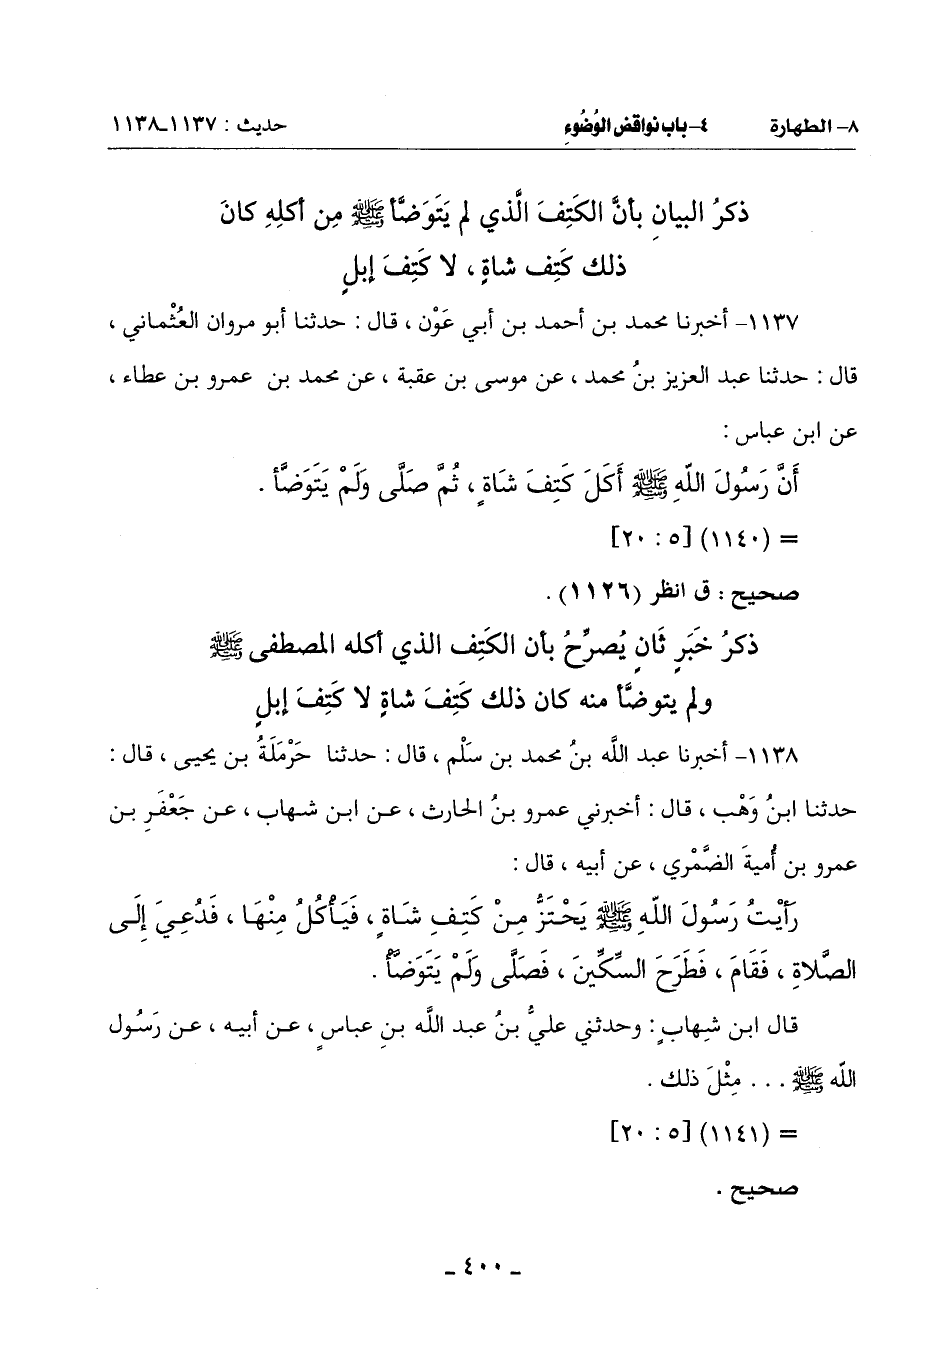 ٨- الطهارة ٤- باب نواقض الوُضُوءِ حديث : ١١٣٧-١١٣٨
ذكرُ البيانِ بأنَّ الكَتِفَ الَّذي لم يَتَوَضَّأ ﷺ مِن أكلِهِ كانَ
ذلك كَتِف شاةٍ ، لا كَتِفَ إبلٍ
١١٣٧- أخبرنا محمد بن أحمد بن أبي عَوْن ، قال : حدثنا أبو مروان العُثْماني ،
قال : حدثنا عبد العزيز بنُ محمد ، عن موسى بن عقبة ، عن محمد بن عمرو بن عطاء ،
عن ابن عباس :
أَنَّ رَسُولَ اللَّهِ ﷺ أَكَلَ كَتِفَ شَاةٍ ، ثُمَّ صَلَّى وَلَمْ يَتَوَضَّأ .
= (١١٤٠) [٥ : ٢٠]
صحيح : ق انظر (١١٢٦) .
ذكرُ خَبَرٍ ثَانٍ يُصرِّحُ بأن الكَتِف الذي أكله المصطفى ﷺ
ولم يتوضَّأ منه كان ذلك كَتِفَ شاةٍ لا كَتِفَ إبلٍ
١١٣٨- أخبرنا عبد اللَّه بنُ محمد بن سَلْم ، قال : حدثنا حَرْمَلَةُ بن يحيى ، قال :
حدثنا ابنُ وَهْب ، قال : أخبرني عمرو بنُ الحارث ، عن ابن شهاب ، عن جَعْفَرِ بن
عمرو بن أُميةَ الضَّمْري ، عن أبيه ، قال :
رَأَيْتُ رَسُولَ اللَّهِ ﷺ يَحْتَزُّ مِنْ كَتِفِ شَاةٍ ، فَيَأْكُلُ مِنْهَا ، فَدُعِيَ إِلَى
الصَّلاةِ ، فَقَامَ ، فَطَرَحَ السِّكِّينَ ، فَصَلَّى وَلَمْ يَتَوَضَّأْ .
قال ابن شِهابٍ : وحدثني عليُّ بنُ عبد اللَّه بنِ عباسٍ ، عن أبيه ، عن رَسُول
اللَّه ﷺ . . . مِثْلَ ذلك .
= (١١٤١) [٥ : ٢٠]
صحيح .
- ٤٠٠ -